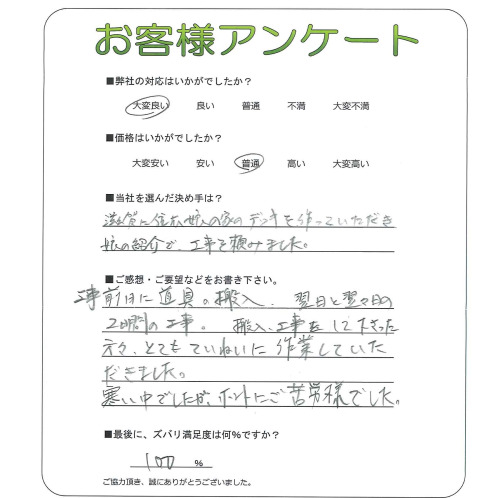 お客様アンケート
■弊社の対応はいかがでしたか？
大変良い 良い 普通 不満 大変不満
■価格はいかがでしたか？
大変安い 安い 普通 高い 大変高い
■当社を選んだ決め手は？
滋賀に住む娘の家のデッキを作っていただき
娘の紹介で、工事を頼みました。
■ご感想・ご要望などをお書き下さい。
工事前日に道具の搬入、翌日と翌々日の
2日間の工事。搬入、工事をして下さった
方々、とてもていねいに作業していた
だきました。
寒い中でしたが、ホントにご苦労様でした。
■最後に、ズバリ満足度は何%ですか？
100 %
ご協力頂き、誠にありがとうございました。